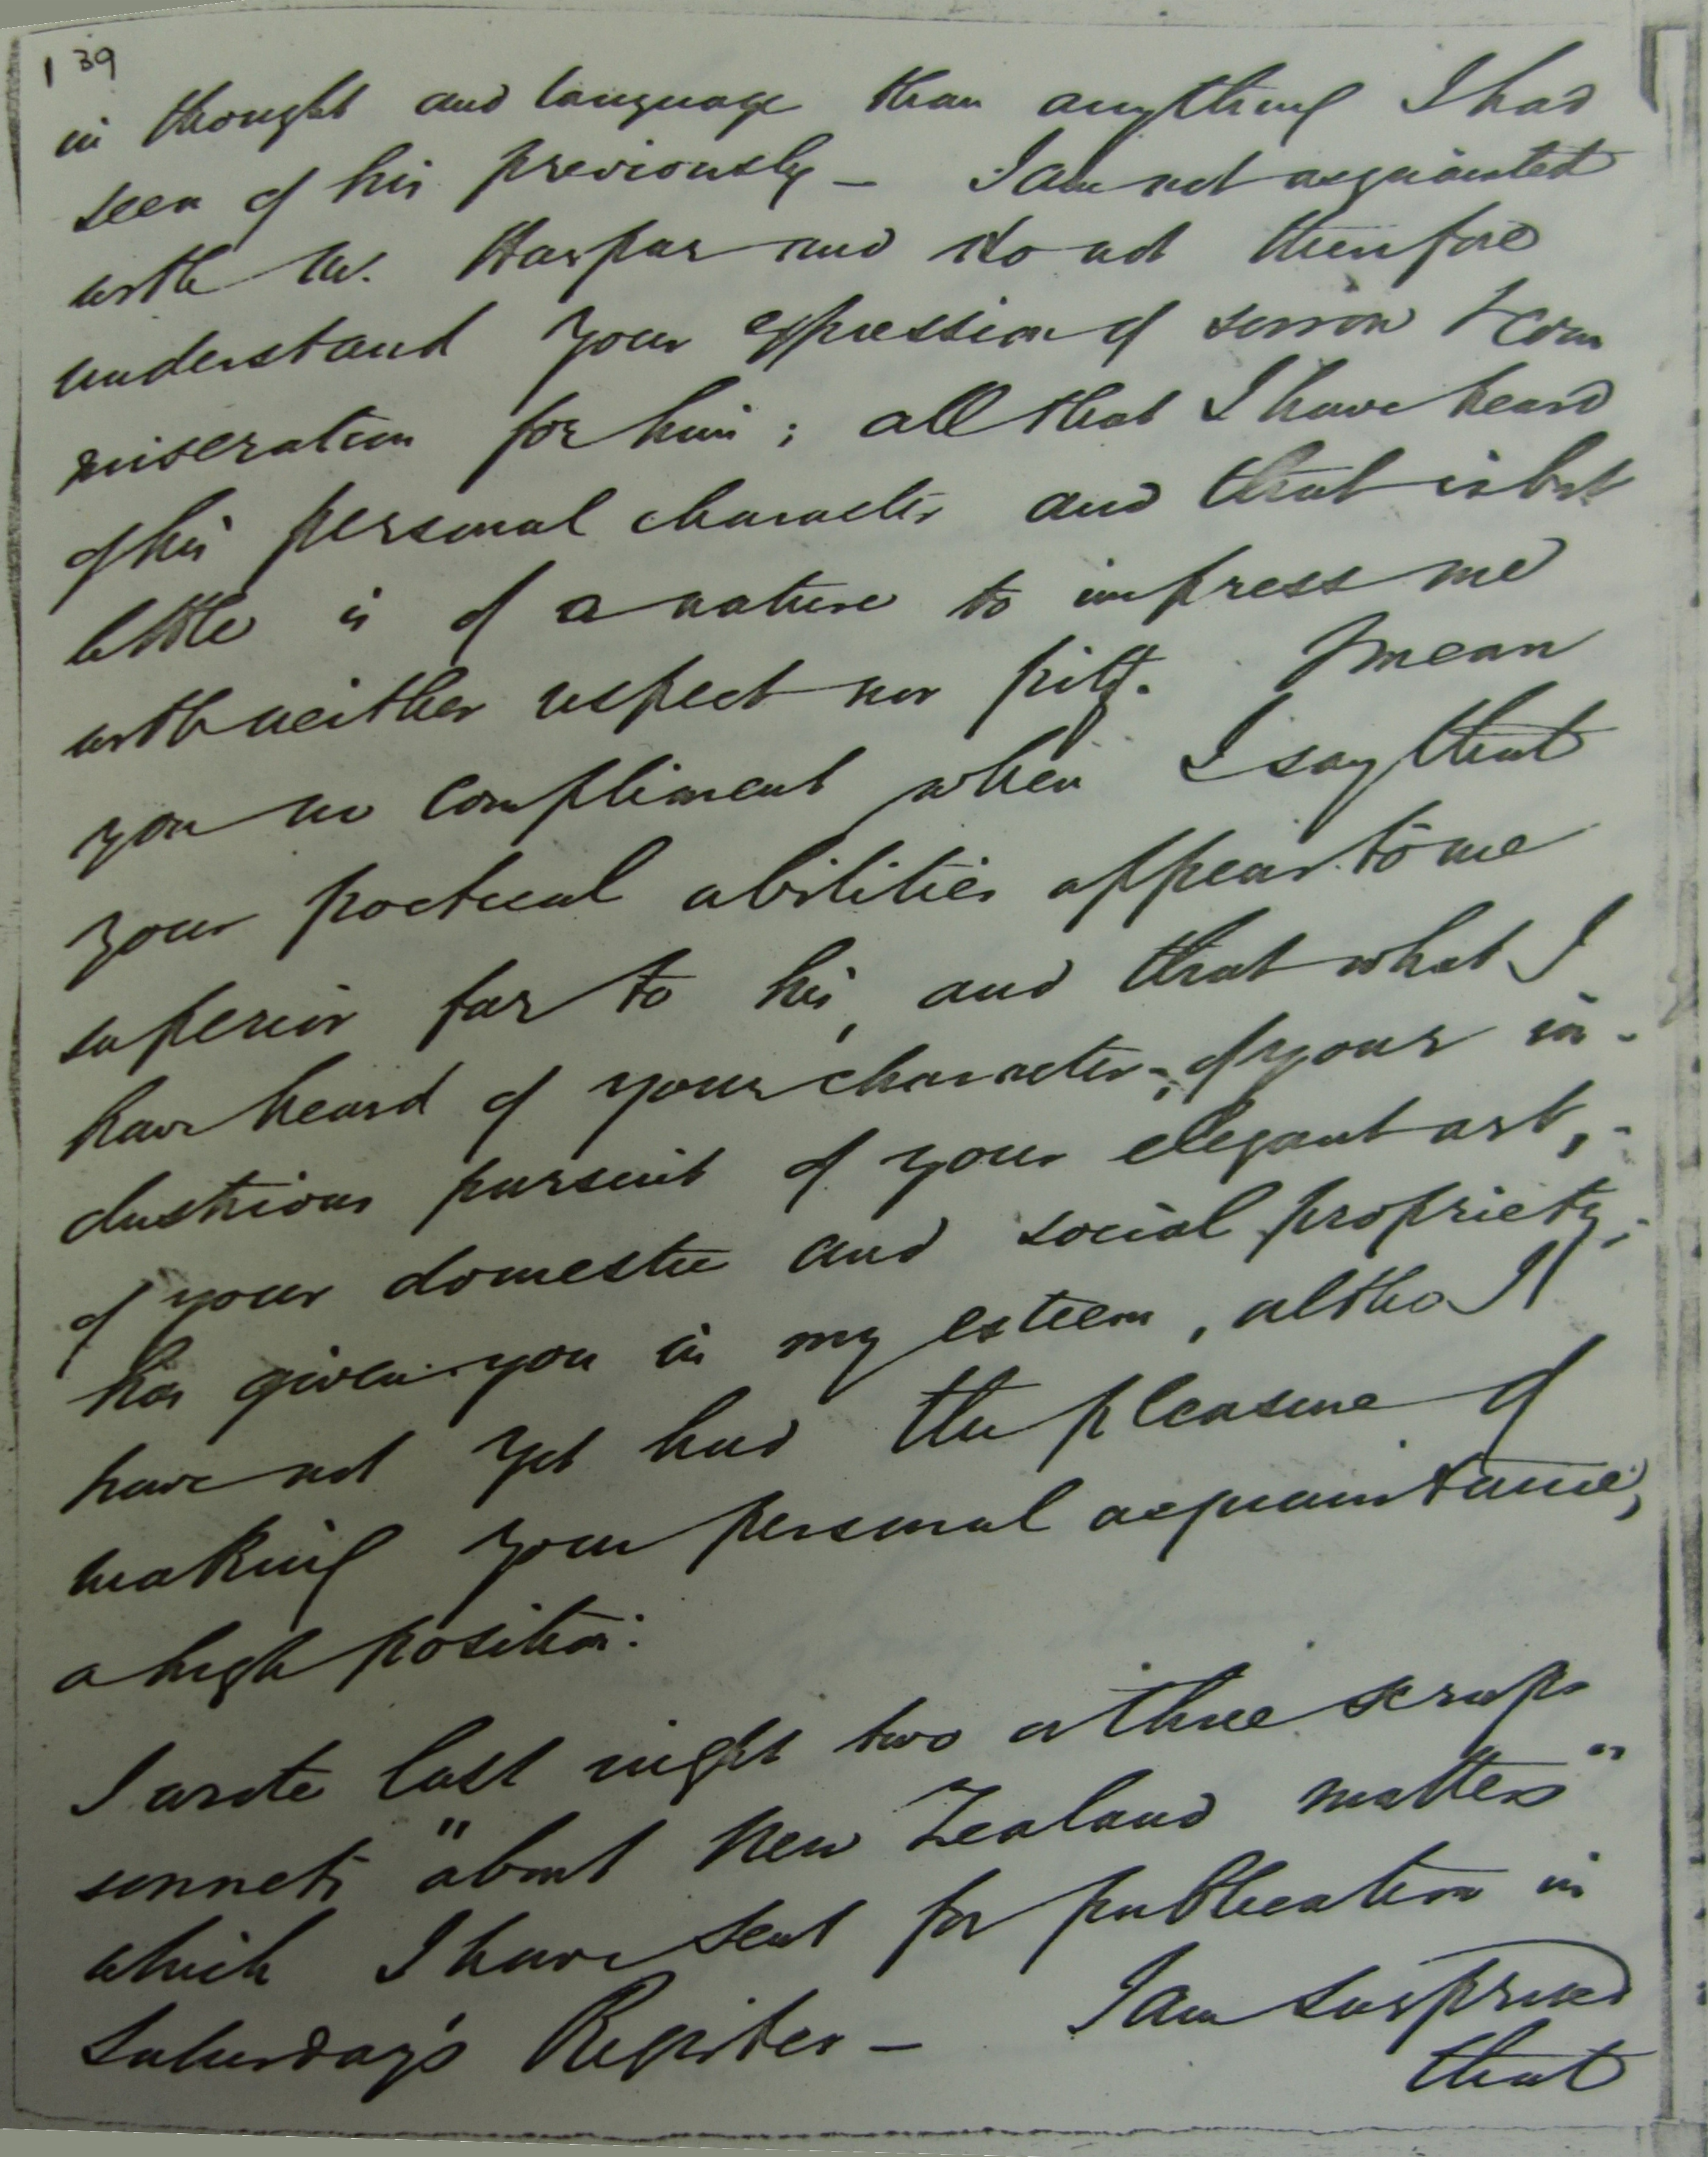 139
in thought and language than anything I had
seen of his previously – I am not acquainted
with Mr. Harpur and do not therefore
understand your expression of sorrow & com
miseration for him; all that I have heard
of his personal character and that is but
little is of a nature to impress me
with neither respect nor pity. I mean
you no compliment when I say that
your poetical abilities appear to me
superior far to his, and that what I
have heard of your character, – of your in-
dustrious pursuit of your elegant art, -
of your domestic and social propriety, -
has given you in my esteem, altho I
have not yet had the pleasure of
making your personal acquaintance,
a high position.
I wrote last night two or three scraps
sonnets "about New Zealand matters"
which I have sent for publication in
Saturday's Register – I am surprised
that